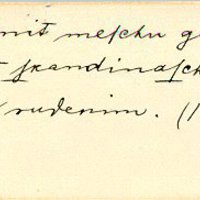 mit meschu g
skandinasch
rudenim. (1